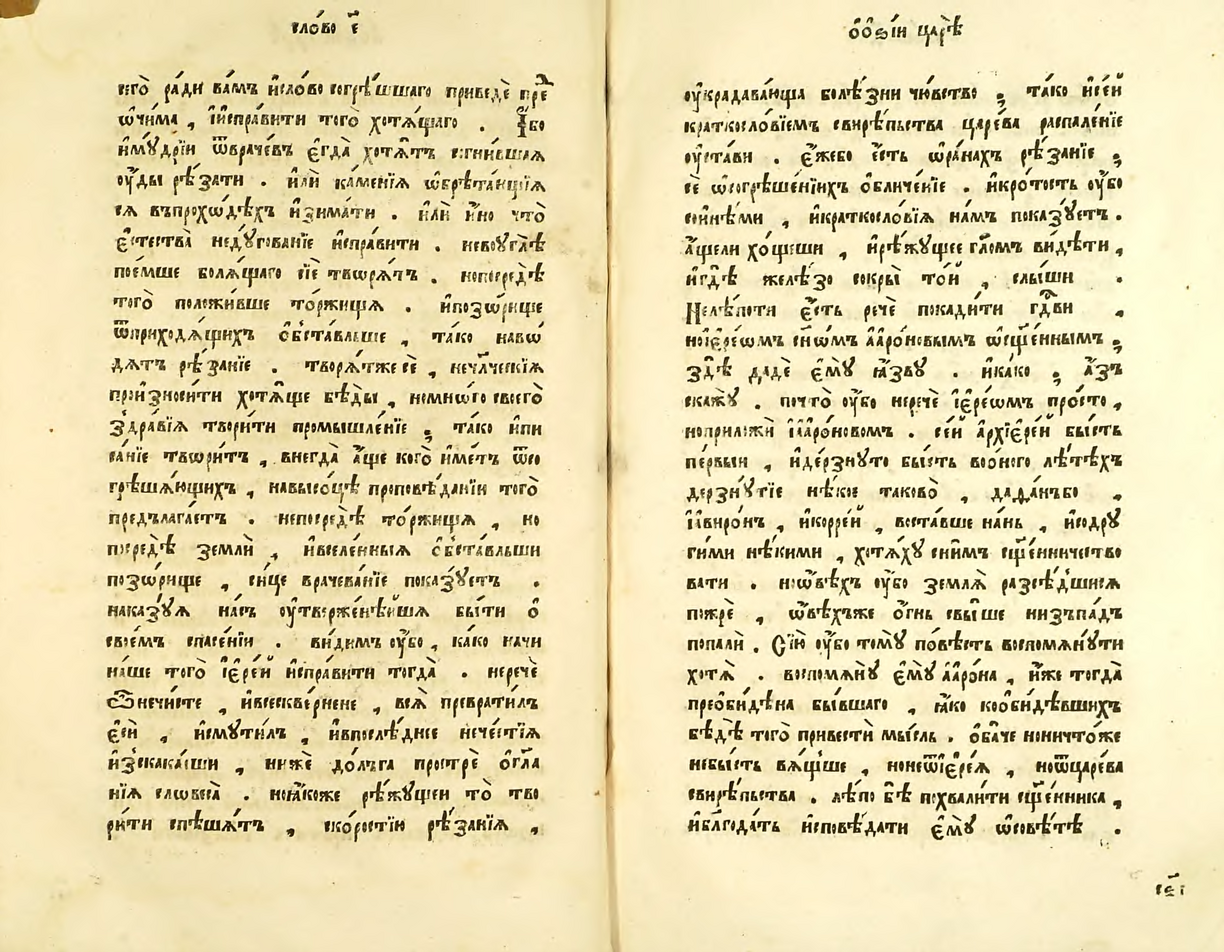 сло́во є҃
сего̀ ра́ди ва́мъ и҆сло́во согрѣ́шшаго приведѐ пре́д
ѡ҆чи́ма , и҆и҆спра́вити того̀ хотѧ́щаго . И҆́бо
и҆мꙋ́дрїи ѿвраче́въ є҆гда̀ хотѧ́тъ сгни́вшаѧ
оу҆́ды рѣ́зати . и҆лѝ ка́менїѧ ѡ҆брѣта́ющїѧ
сѧ въпрохо́дѣхъ и҆зима́ти . и҆лѝ и҆́но что̀
є҆стества̀ недꙋ́гованїе и҆спра́вити . невоу҆́глѣ
пое́мше болѧ́щаго сїѐ творѧ́тъ . нопосредѣ̀
того̀ положи́вше то́ржища . и҆позѡ́рище
ѿприходѧ́щихъ ѻ҆бста́вльше , та́ко навѡ́
дѧтъ рѣ́занїе . творѧ́тжесѐ , нечл҃ческїѧ
приѝзносити хотѧ́ще бѣды̀ , номно́го своего̀
здра́вїѧ твори́ти промышле́нїе ; та́ко и҆пи
са́нїе твори́тъ , внегда̀ а҆́ще кого̀ и҆́метъ ѿсо
грѣша́ющихъ , навысо́цѣ проповѣ́данїи того̀
предълага́етъ . непосредѣ̀ то́ржища , но
посредѣ̀ землѝ , и҆вселе́нныѧ ѻ҆бста́вльши
позѡ́рище , си́це врачева́нїе показꙋ́етъ .
наказꙋ́ѧ на́съ оу҆твержене́йшѧ бы́ти ѻ҆
свое́мъ спасе́нїи . ви́димъ оу҆́бо , ка́ко начи
на́ше того̀ і҆ере́й и҆спра́вити тогда̀ . неречѐ
ѽнечи́сте , и҆всескве́рнене , всѧ̀ преврати́лъ
є҆сѝ , и҆смꙋти́лъ , и҆впослѣ́днее нече́стїѧ
и҆зскака́еши , нижѐ до́лъга прострѐ ѻ҆гла
нїѧ словеса̀ . ноꙗ҆́коже рѣ́жꙋщеи то̀ тво
ри́ти спѣша́тъ , ско́ростїи рѣ́занїѧ ,
ѻ҆ѻ҆зїи царѣ̀
оу҆крадава́юща болѣ́зни чю́вство ; та́ко и҆се́й
краткосло́вїемъ свирѣ́пьства царе́ва распале́нїе
оу҆ста́ви . є҆́жебо є҆́сть ѡ҆ра́нахъ рѣ́занїе ;
сѐ ѡ҆согрѣше́нїихъ ѻ҆бличе́нїе . и҆кро́тость оу҆́бо
си́нѣми , и҆краткосло́вїѧ на́мъ показꙋ́етъ .
а҆́щели хо́щеши , и҆рѣ́жꙋщее гл҃омъ ви́дѣти ,
и҆гдѣ̀ желѣ́зо сокры̀ то́й , слы́ши .
Нелѣ́поти є҆́сть речѐ покади́ти гд҇ви ,
ноі҆ере́ѡмъ сн҃ѡмъ а҆арѡ́новымъ ѡ҆сщ҃е́ннымъ ;
здѣ̀ дадѐ є҆мꙋ̀ ꙗ҆́звꙋ . и҆ка́ко ; а҆́зъ
скажꙋ̀ . почто̀ оу҆́бо неречѐ і҆ере́ѡмъ про́сто ,
ноприложѝ а҆арѡ́новомъ . се́й а҆рхїере́й бы́сть
пе́рвыи , и҆дерзнꙋ́то бы́сть воо́ного лѣ́тѣхъ
дерзнꙋ́тїе нѣ́кое таково̀ , да́ѳа́нъбо ,
а҆виро́нъ , и҆корре́й , воста́вше на́нь , и҆содрꙋ
ги́ми нѣ́кими , хотѧ́хꙋ сни́мъ сщ҃е́нничество
вати . ноѻ҆́вѣхъ оу҆́бо землѧ̀ разсѣ́дшисѧ
пожрѐ , ѡ҆́вѣхъже ѻ҆́гнь свы́ше низъпа́дъ
попалѝ . Сїю̀ оу҆́бо томꙋ̀ по́вѣсть воспомѧнꙋ́ти
хотѧ̀ . воспомѧнꙋ̀ є҆мꙋ̀ а҆арѡ́на , и҆́же тогда̀
преоби́дѣна бы́вшаго , ꙗ҆́ко кооби́дѣвшихъ
бѣдѣ̀ того̀ привестѝ мы́сль . ѻ҆ба́че ноничто́же
небы́сть вѧ́щьше , нонеѿі҆ере́ѧ , ноѿцаре́ва
свирѣ́пьства . лѣ́по бѣ̀ похвали́ти сщ҃е́нника ,
и҆благода́ть и҆сповѣ́дати є҆мꙋ̀ ѡ҆совѣ́тѣ .